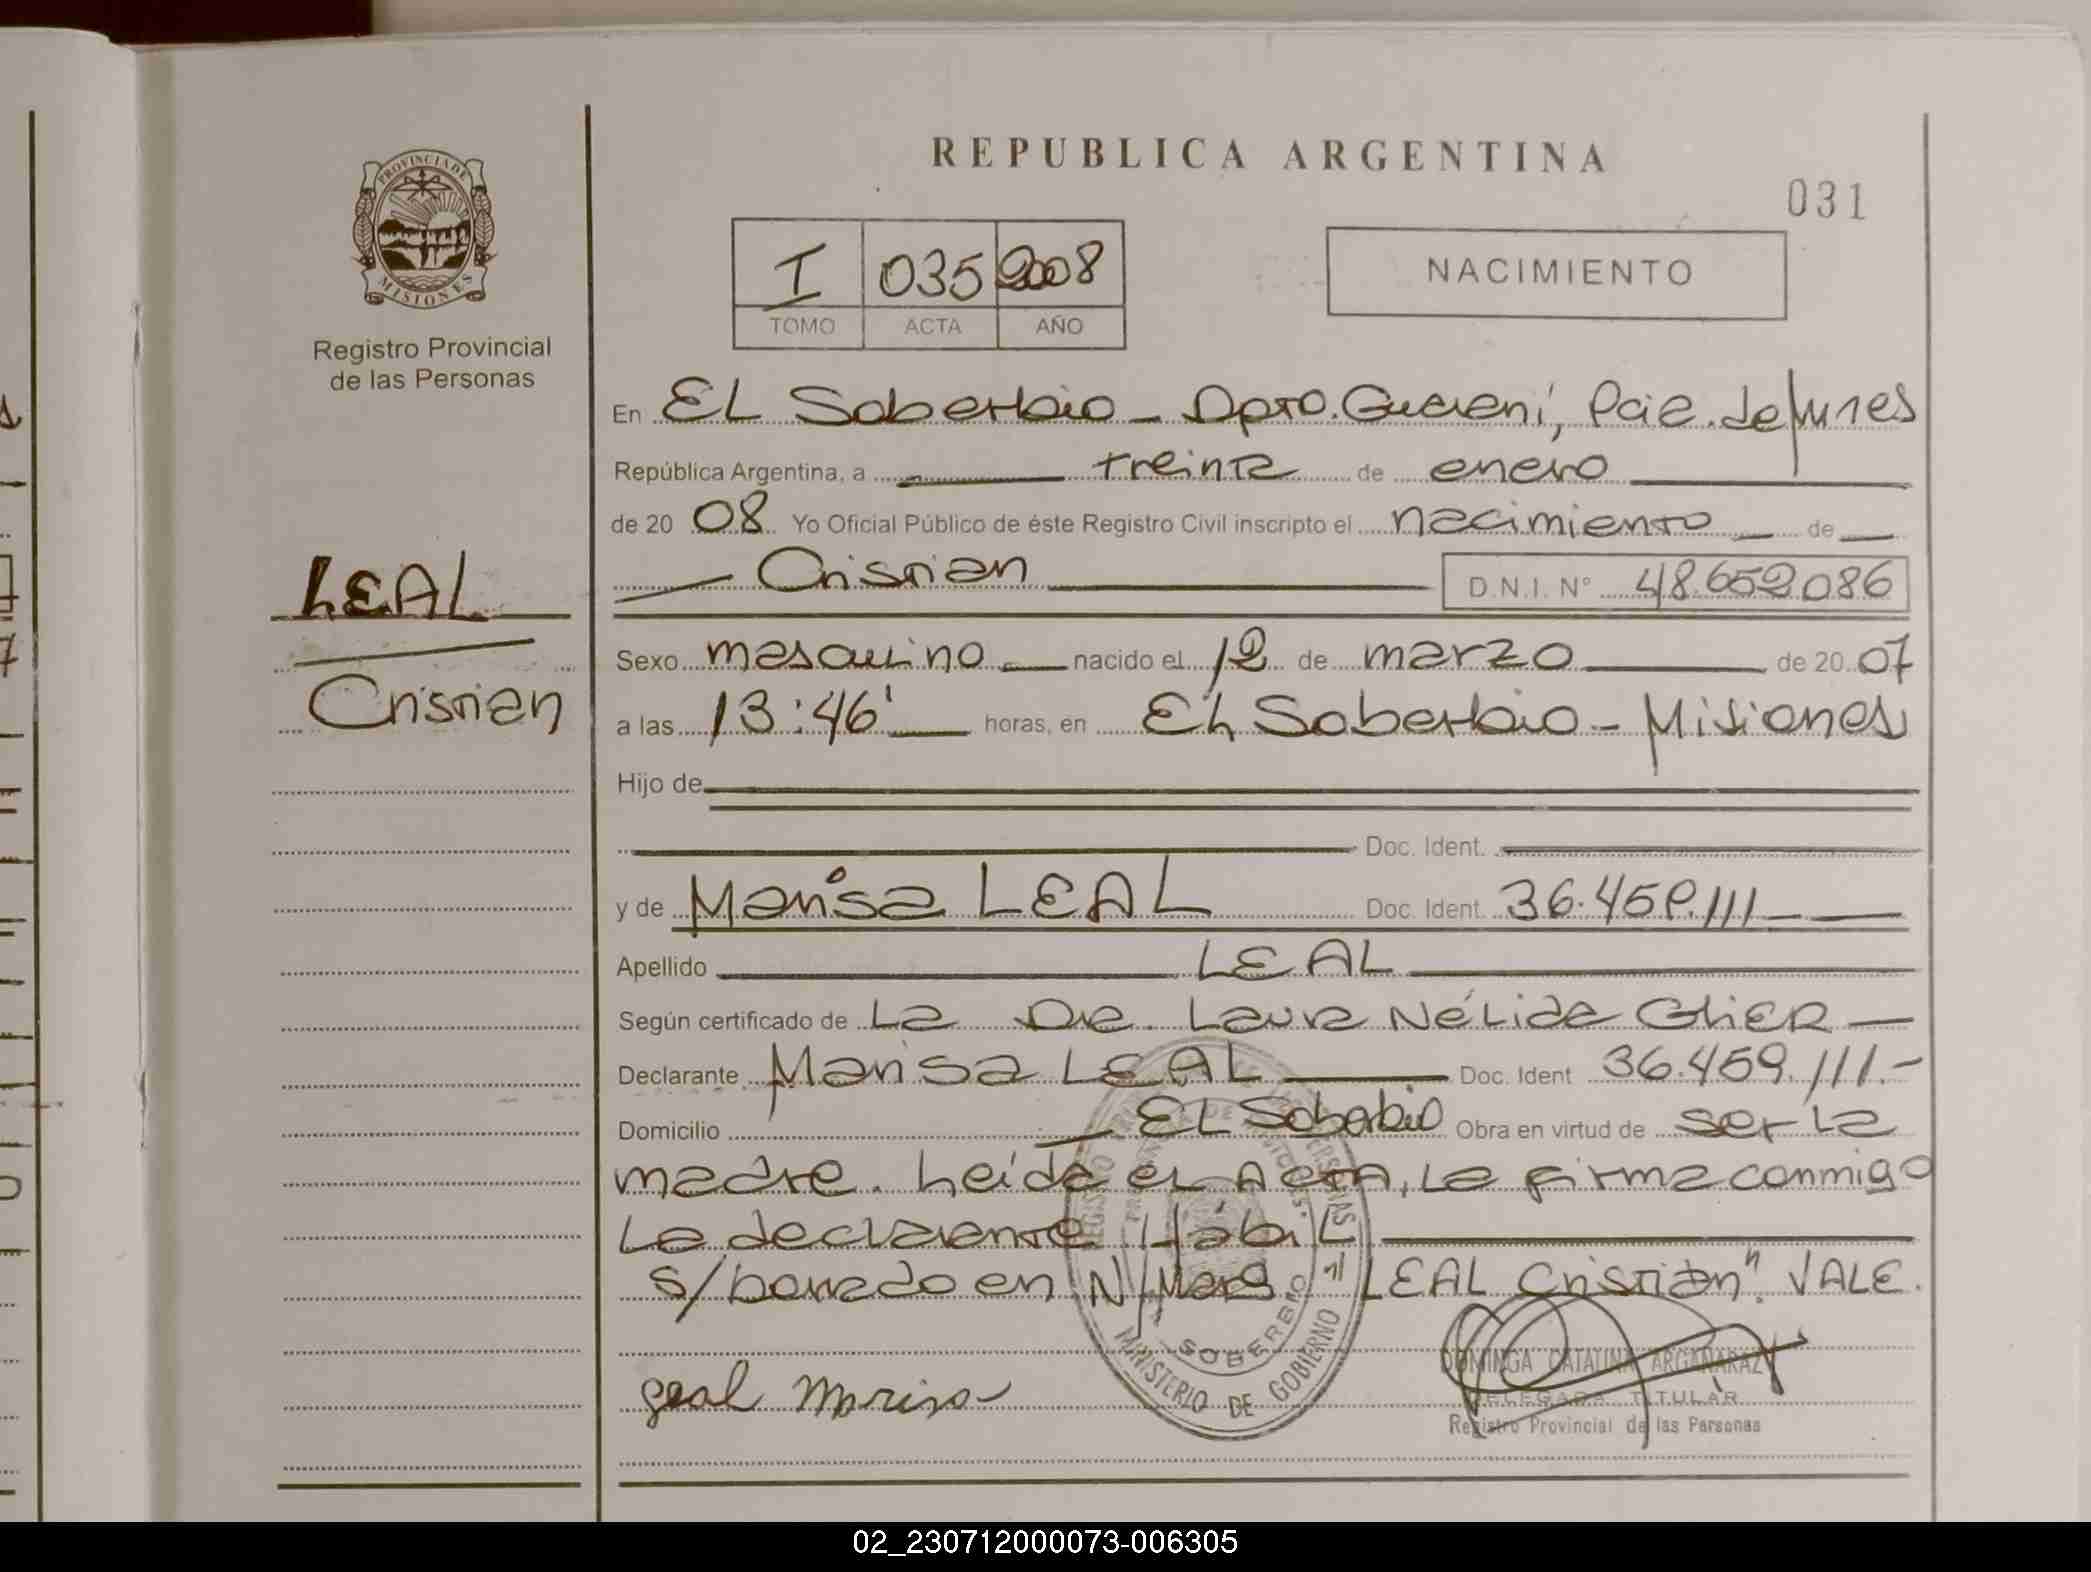 REPUBLICA ARGENTINA
031
PROVINCIA DE
MISIONES
Registro Provincial
de las Personas
I 035 2008
TOMO ACTA AÑO
NACIMIENTO
En EL Soberbio - Dpto. Guarani, Pcia. de Misiones
República Argentina, a treinta de enero
de 20 08 Yo Oficial Público de éste Registro Civil inscripto el nacimiento de
Cristian D.N.I. Nº 48.652086
LEAL
Cristian
Sexo masculino nacido el 12 de marzo de 20 07
a las 13:46' horas, en EL Soberbio - Misiones
Hijo de
Doc. Ident.
y de Marisa LEAL Doc. Ident. 36.459.111
Apellido LEAL
Según certificado de La Dra. Laura Nélida GLIER
Declarante Marisa LEAL Doc. Ident 36.459.111.-
Domicilio EL Soberbio Obra en virtud de ser La
madre. Leída el ActA, La firma conmigo
La declarante Hábil
s/borrado en N/Marg. "LEAL Cristian". VALE.
Leal Marisa
SOBERBIO
MINISTERIO DE GOBIERNO
DOMINGA CATALINA ARGAÑARAZ
DELEGADA TITULAR
Registro Provincial de las Personas
02_230712000073-006305